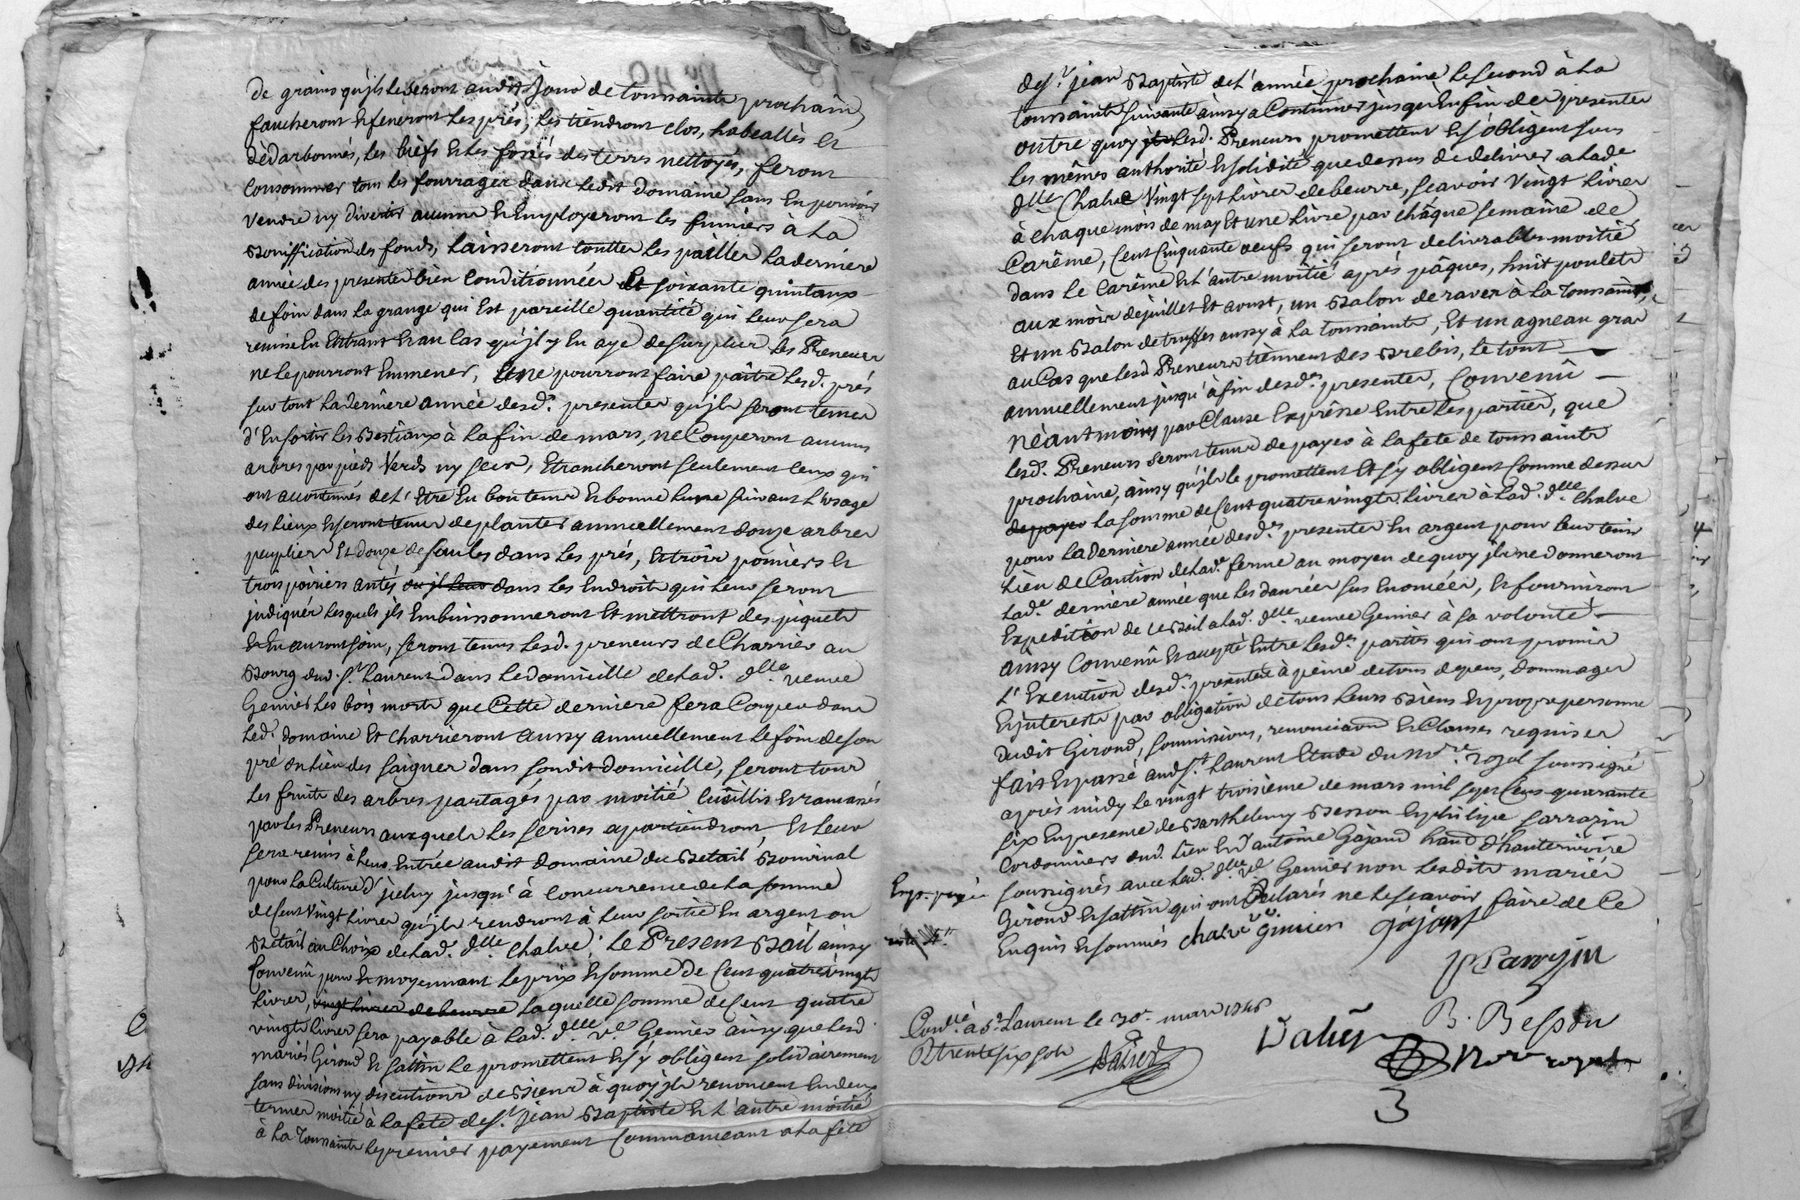 de grains qu'jls leseront audit jour de toussaints prochain
faucheront et feneront les prés, les tiendront clos, habeallés et
dèdarbonnés, les biefs et les fossés des terres nettoyés, feront
Consommer tous les fourrages dans ledit domaine sans En pouvoir
vendre ny divertir aucuns et Employeront les fumiers à La
Bonniffication des fonds, Laisseront touttes les pailles La derniere
année des presentes bien Conditionnées et soixante quintaux
de foin dans la grange qui Est pareille quantité qui leur sera
remise En Entrant Et au Cas qu'jl y En aye de surplus les Preneurs
ne le pourront Emmener, Et ne pourront faire paître lesd. prés
sur tout La derniere année desd.es presentes qu'jls seront tenus
d'En sortir les Bestiaux à La fin de mars, ne Couperont aucuns
arbres par pieds Verds ny secs, Etrancheront seulement Ceux qui
ont accoutumés de L'être En bon tems Et bonne Lune suivant L'usage
des lieux Et seront tenus de planter annuellement douze arbres
peupliers Et douze de saules dans les prés, Et trois pomiers Et
trois poiriers antés ou jl leur dans les Endroits qui leur seront
jndiqués lesquels jls Embuissonneront Et mettront des piquets
Et En auront soin, seront tenus Lesd. preneurs de Charrier au
Bourg dud. S.t Laurent dans le domicille de lad. d.lle veuve
Genier Les bois morts que Cette derniere fera Couper dans
Led. domaine Et Charrieront aussy annuellement Le foin de son
pré en lieu des saigner dans sondit domicille, seront tous
Les fruits des arbres partagés par moitié Cüeillis Et ramassés
par les Preneurs auxquels Les serises apartiendront, Et leur
sera remis à leur Entrée audit domaine du Betail Bominal
pour La Culture d'jceluy jusqu'à Concurrence de la somme
de Cent Vingt Livres qu'jls rendront à leur sortie En argent ou
Betail au Choix de Lad. d.lle Chalve; Le Present Bail ainsy
Convenû pour Et moyennant le prix Et somme de Cent quatrevingts
Livres, vingt livres de beurre Laquelle somme de Cent quatre
vingts Livres sera payable à Lad. d.lle v.e Genier ainsy que lesd.
mariés Giroud Et Sattin le promettent Et s'y obligent solidairement
sans division ny discution de Biens à quoy jls renoncent En deux
termes moitié à La fete de S.t jean Baptiste Et L'autre moitié
à La Toussaints Le premier payement Commanceant a La fete
de S.t jean Baptiste de L'année prochaine Le second à La
toussaints suivante ainsy a Continuer jusqu'En fin des presentes
outre quoy jls Lesd. Preneurs promettent Et s'obligent sous
Les mêmes authorité Et solidité que dessus de delivrer a Lad.e
d.lle Chalve Vingt sept Livres de beurre, scavoir Vingt Livres
à chaque mois de may Et une Livre par châque semaine de
Carême, Cent Cinquante oeufs qui seront delivrables moitié
dans Le Carême Et L'autre moitié après pâques, huit poulets
aux mois de juillet Et aoust, un Balon de raves à La Toussaints,
Et un Balon de truffes aussy à La toussaints, Et un agneau gras
au Cas que lesd. Preneurs tiennent des Brebis, Le tout
annuellement jusqu'à fin desd.es presentes, Convenû
nèantmoins par Clause Expresse Entre Les parties, que
lesd. Preneurs seront tenus de payer à La fete de toussaints
prochaine, ainsy qu'jls le promettent Et s'y obligent Comme dessus
de payer La somme de Cent quatrevingts Livres à Lad. d.lle Chalve
pour La derniere année desd.es presentes En argent pour leur tenir
Lieu de Caution de Lad.e ferme au moyen de quoy jls ne donneront
Lad.e derniere année que les danrées sus Enoncées, Et fourniront
Expedition de ce Bail a Lad. d.lle veuve Genier à sa volonté
ainsy Convenû Et accepté Entre Lesd.es parties qui ont promis
L'Execution desd.es presentes à peine de tous depens, dommages
Et jnterests par obligation de tous Leurs Biens Et propre personne
dudit Giroud, soumissions, renonciations Et Clauses requises
fait Et passé aud. S.t Laurent Etude du No.re royal soussigné
après midy le vingt troisième de mars mil sept Cens quarante
six En presence de Barthelemy Besson Et philipe Sarrazin
Cordonniers dud. Lieu Et d'antoine Gajand hand d'hauterivoire
soussignés avec Lad. d.lle v.e Genier non Lesdits mariés
Giroud Et Sattin qui ont Declarés ne le scavoir faire de Ce
Enquis Et sommés chalve v.ve ginier gajant
P Sarrazin
B. Besson
Con.lé à S.t Laurent le 30.e mars 1746
R trente six sols
Dalier
Nore royal
3